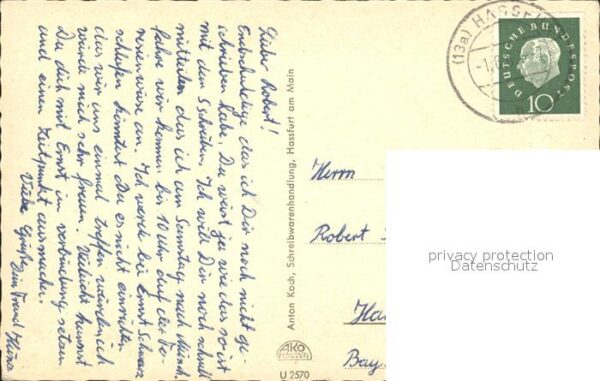 Lieber Robert!
Entschuldige das ich Dir noch nicht ge-
schrieben habe. Du weist ja wie das so ist
mit dem Schreiben. Ich will Dir noch schnell
mitteilen das ich am Sonntag nach
fahre wir kennen bis 10 Uhr auf der Fe
wiese an. Ich werde bei Ernst Schwarz
schlafen könntest Du es nicht einrichten
das wir uns einmal treffen würde ich
würde mich sehr freuen. Vieleicht kannst
Du dich mit Ernst in verbindung setzen
und einen Zeitpunkt ausmachen.
Viele Grüße
Dein Freund Heinz
Anton Koch, Schreibwarenhandlung, Hassfurt am Main
AKO
U 2570
(13a) HASSF
DEUTSCHE BUNDESPOST
10
Herrn
Robert
Ha
Bay
privacy protection
Datenschutz